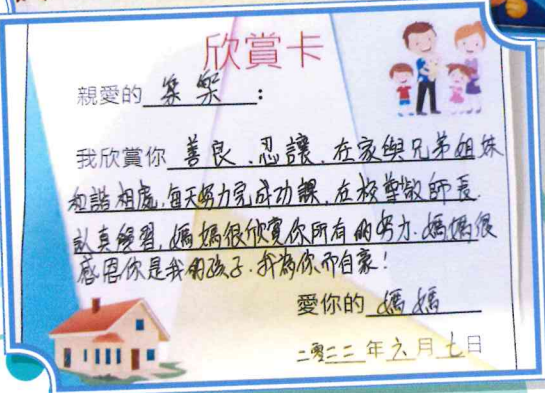 欣賞卡
親愛的 樂：
我欣賞你 善良、忍讓、在家與兄弟姐妹
和諧相處,每天努力完成功課,在校尊敬師長.
認真學習,媽媽很欣賞你所有的努力.媽媽很
感恩你是我的孩子.我為你而自豪!
愛你的 媽媽
二零二二年六月七日